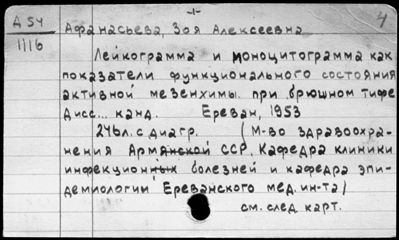 -1-
4
А 54
1116
Афанасьева, Зоя Алексеевна
Лейкограмма и моноцитограмма как
показатели функционального состояния
активной мезенхимы при брюшном тифе
Дисс... канд. Ереван, 1953
246л. с диагр. (М-во здравоохра-
нения Армянской ССР. Кафедра клиники
инфекционных болезней и кафедра эпи-
демиологии Ереванского мед. ин-та)
см. след карт.